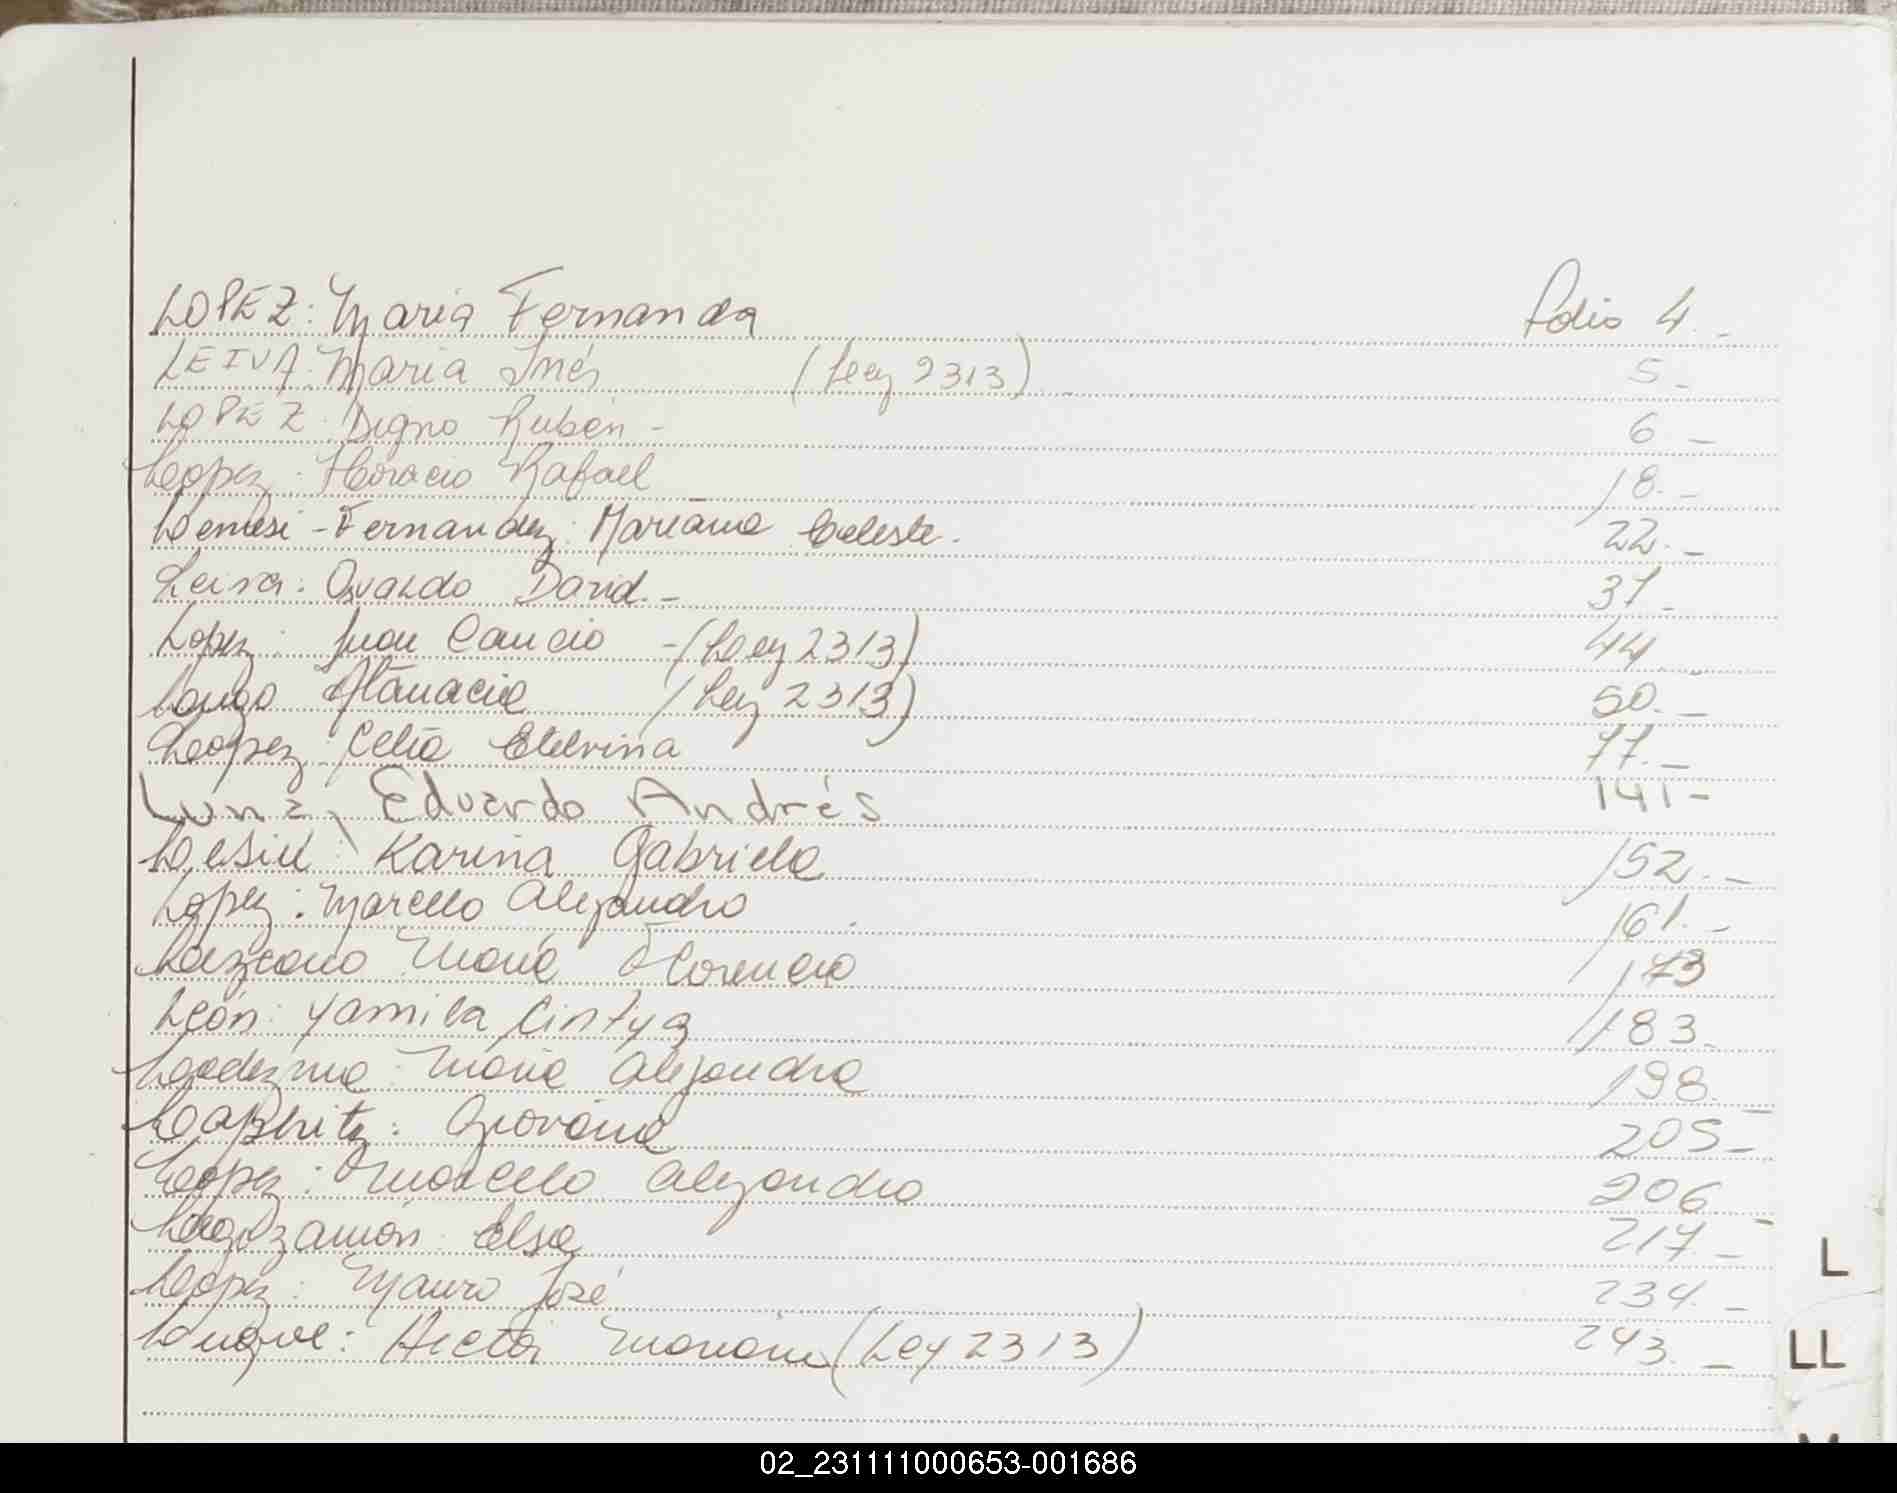 LOPEZ: Maria Fernanda folio 4.-
LEIVA: Maria Inés (Ley 2313).- 5.-
LOPEZ: Digno Rubén- 6-
Lopez: Horacio Rafael 18.-
Fernandez: Mariana Celeste. 22.-
Leiva: Osvaldo David.- 37-
Lopez: Juan Cancio -(Ley 2313) 44-
Longo Atanacia (Ley 2313) 50.-
Lopez: Celia Etelvina 77.-
Luna, Eduardo Andrés 141-
Karina Gabriela 152.-
Lopez: Marcelo Alejandro 161.-
Lazcano María Florencia 173
León: Yamila Cintya 183-
Ledezma: María Alejandra 198.-
Laphitz: Giovana 205-
Lopez: Marcelo Alejandro 206-
Leguizamón: Elsa 217.-
Lopez: Mauro José 234.-
Luque: Hector (Ley 2313) 243.-
L
LL
M
02_231111000653-001686